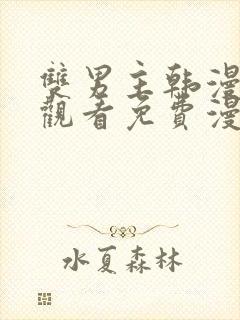 雙男主韩漫
觀看免費漫
水夏森林